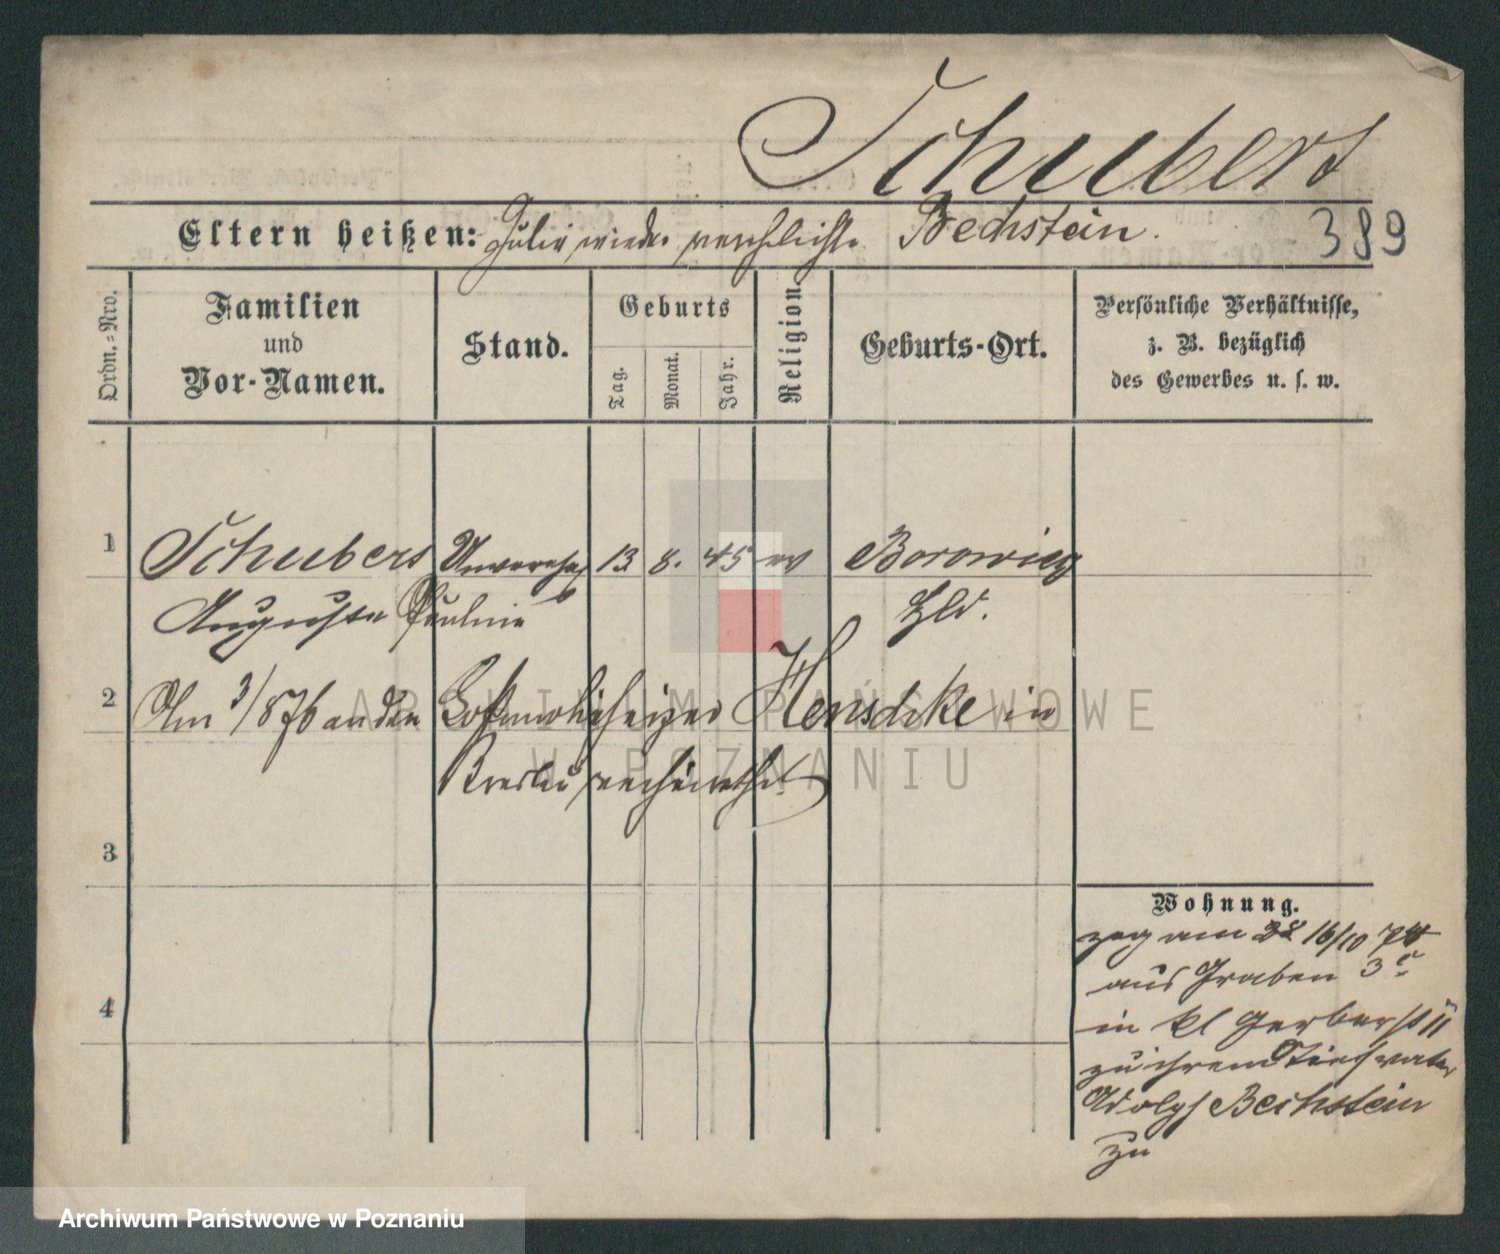 Schubert
Eltern heißen: Julie wieder verehelichte Bechstein.
389
Ordn.-Nro.
Familien
und
Vor-Namen.
Stand.
Geburts
Tag.
Monat.
Jahr.
Religion
Geburts-Ort.
Persönliche Verhältnisse,
z. B. bezüglich
des Gewerbes u. s. w.
1
Schubert Unverehel 13 8. 45 ev Borowiec
Auguste Pauline Hld.
2
Am 3/876 an den Lokomotivheizer Henschke in
Breslau verheirathet
3
4
Wohnung.
zog am 16/10 74
aus Graben 3c
in kl Gerberst 11
zu ihrem Stiefvater
Adolph Bechstein
zu
ARCHIWUM PAŃSTWOWE
W POZNANIU
Archiwum Państwowe w Poznaniu